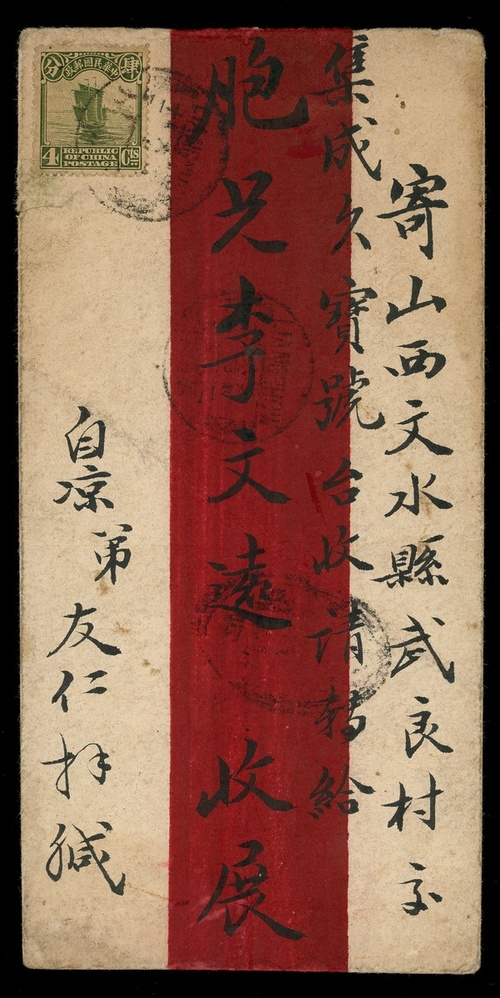 寄山西文水縣武良村交
集成久寶號台收請轉給
胞兄李文遠收展
自凉第友仁拜緘
中華民國郵政
肆
分
4 Cts
REPUBLIC
OF CHINA
POSTAGE